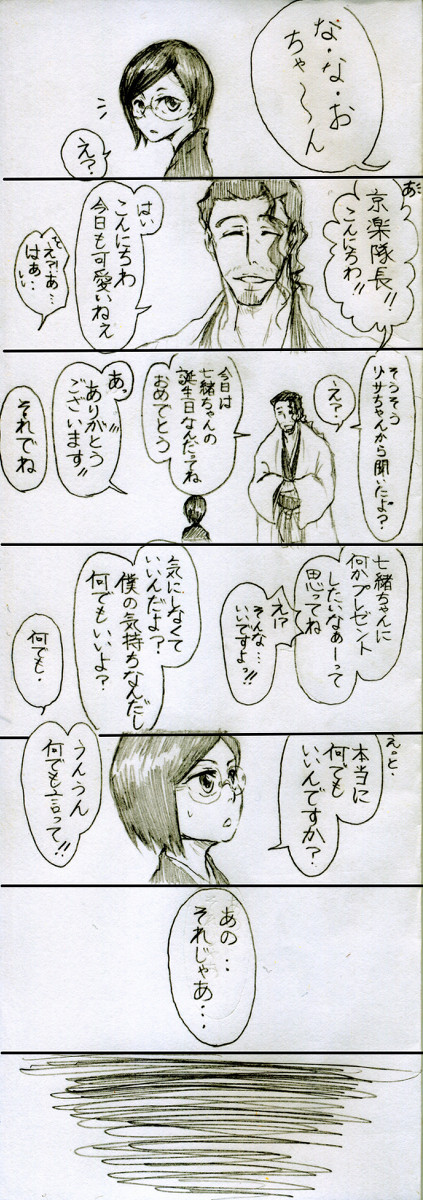 な・な・お
ちゃ〜ん
え?
あ
京楽隊長!!
こんにちわ!!
はい
こんにちわ
今日も可愛いねぇ
え?あ…
はぁ…
そうそう
リサちゃんから聞いたよ?
え?
今日は
七緒ちゃんの
誕生日なんだってね
おめでとう
あっ
ありがとう
ございます!!
それでね
七緒ちゃんに
何かプレゼント
したいなぁーって
思ってね
え!?
そんな…
いいですよっ!!
気にしなくて
いいんだよ?
僕の気持ちなんだし
何でもいいよ?
何でも・
えと・
本当に
何でも
いいんですか?
うんうん
何でも言って!!
あの‥
それじゃあ…